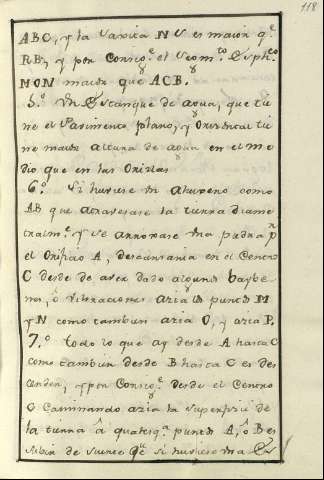 118
ABC, y la Sagita NS es maior q.e
RB, y por Consig.e el Segm.to Esph.co
MON maior que ACB.
5.o Un Estanque de agua, que tie
ne el Pavimento plano, y Orizontal tie
ne maior altura de agua en el me
dio que en las Orillas
6.o Si huviese un Ahugeno como
AB que atravesase la tierra diame
tralm.te y se arrojase una piedra p.r
el Orificio A, descansaria en el Centro
C desde de aver dado algunos baybe
nes, o vibraciones azia los puntos M
y N como tambien azia O, y azia P.
7.o todo lo que ay desde A hasta C
como tambien desde B hasta C es des
cender, y por Consig.e desde el Centro
C Caminando azia la superficie de
la tierra â qualesq.a puntos A, ô B es
subir de suerte q.e si huviese una Es